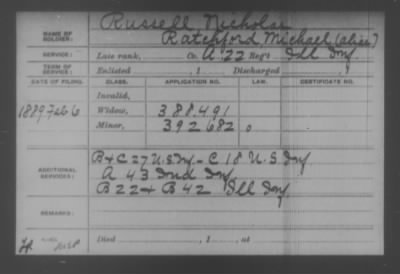 Russell Nicholas
NAME OF SOLDIER: Ratchford Michael (alias)
SERVICE: Late rank, Co. A, 22 Reg't Ill Inf.
TERM OF SERVICE: Enlisted , 1 Discharged , 1
DATE OF FILING. CLASS. APPLICATION NO. LAW. CERTIFICATE NO.
Invalid,
1889 Feb 6 Widow, 388.491
Minor, 392682
B & C 27 U.S. Inf - C 18 U.S Inf
ADDITIONAL SERVICES: A 43 Ind Inf
B 22 & B 42 Ill Inf
REMARKS:
Died , 1 , at